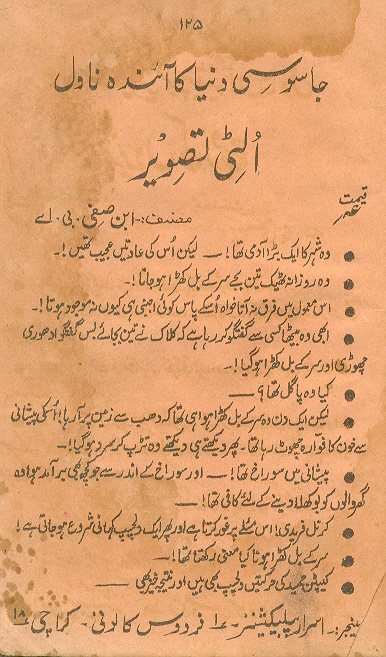 ۱۲۵
جاسوسی دنیا کا آئندہ ناول
اُلٹی تصویر
قیمت
مصنف:۔ ابن صفی۔ بی۔ اے
● وہ شہر کا ایک بڑا آدمی تھا!— لیکن اُس کی عادتیں عجیب تھیں!۔
● وہ روزانہ ٹھیک تین بجے سر کے بل کھڑا ہو جاتا!۔
● اس معمول میں فرق نہ آتا خواہ اُسکے پاس کوئی اجنبی ہی کیوں نہ موجود ہوتا!۔
● ابھی وہ بیٹھا کسی سے گفتگو کر رہا ہے کہ کلاک نے تین بجائے بس گفتگو ادھوری
چھوڑی اور سر کے بل کھڑا ہو گیا!۔
● کیا وہ پاگل تھا؟—
● لیکن ایک دن وہ سر کے بل کھڑا ہوا ہی تھا کہ دھب سے زمین پر آ رہا! اُسکی پیشانی
سے خون کا فوارہ چھوٹ رہا تھا۔ پھر دیکھتے ہی دیکھتے وہ تڑپ کر سرد ہو گیا!۔
● پیشانی میں سوراخ تھا!— اور سوراخ کے اندر سے جو کچھ بھی برآمد ہوا وہ
گھر والوں کو بوکھلا دینے کے لئے کافی تھا!—
● کرنل فریدی! اس مسئلے پر غور کرتا ہے اور پھر ایک دلچسپ کہانی شروع ہو جاتی ہے!
● سر کے بل کھڑا ہونا کیا معنی رکھتا تھا!—
● کیپٹن حمید کی حرکتیں دلچسپ بھی ہیں اور نتیجہ خیز بھی —
منیجر:۔ اسرار پبلیکیشنز۔ ۱۷ فردوس کالونی۔ کراچی ۱۸